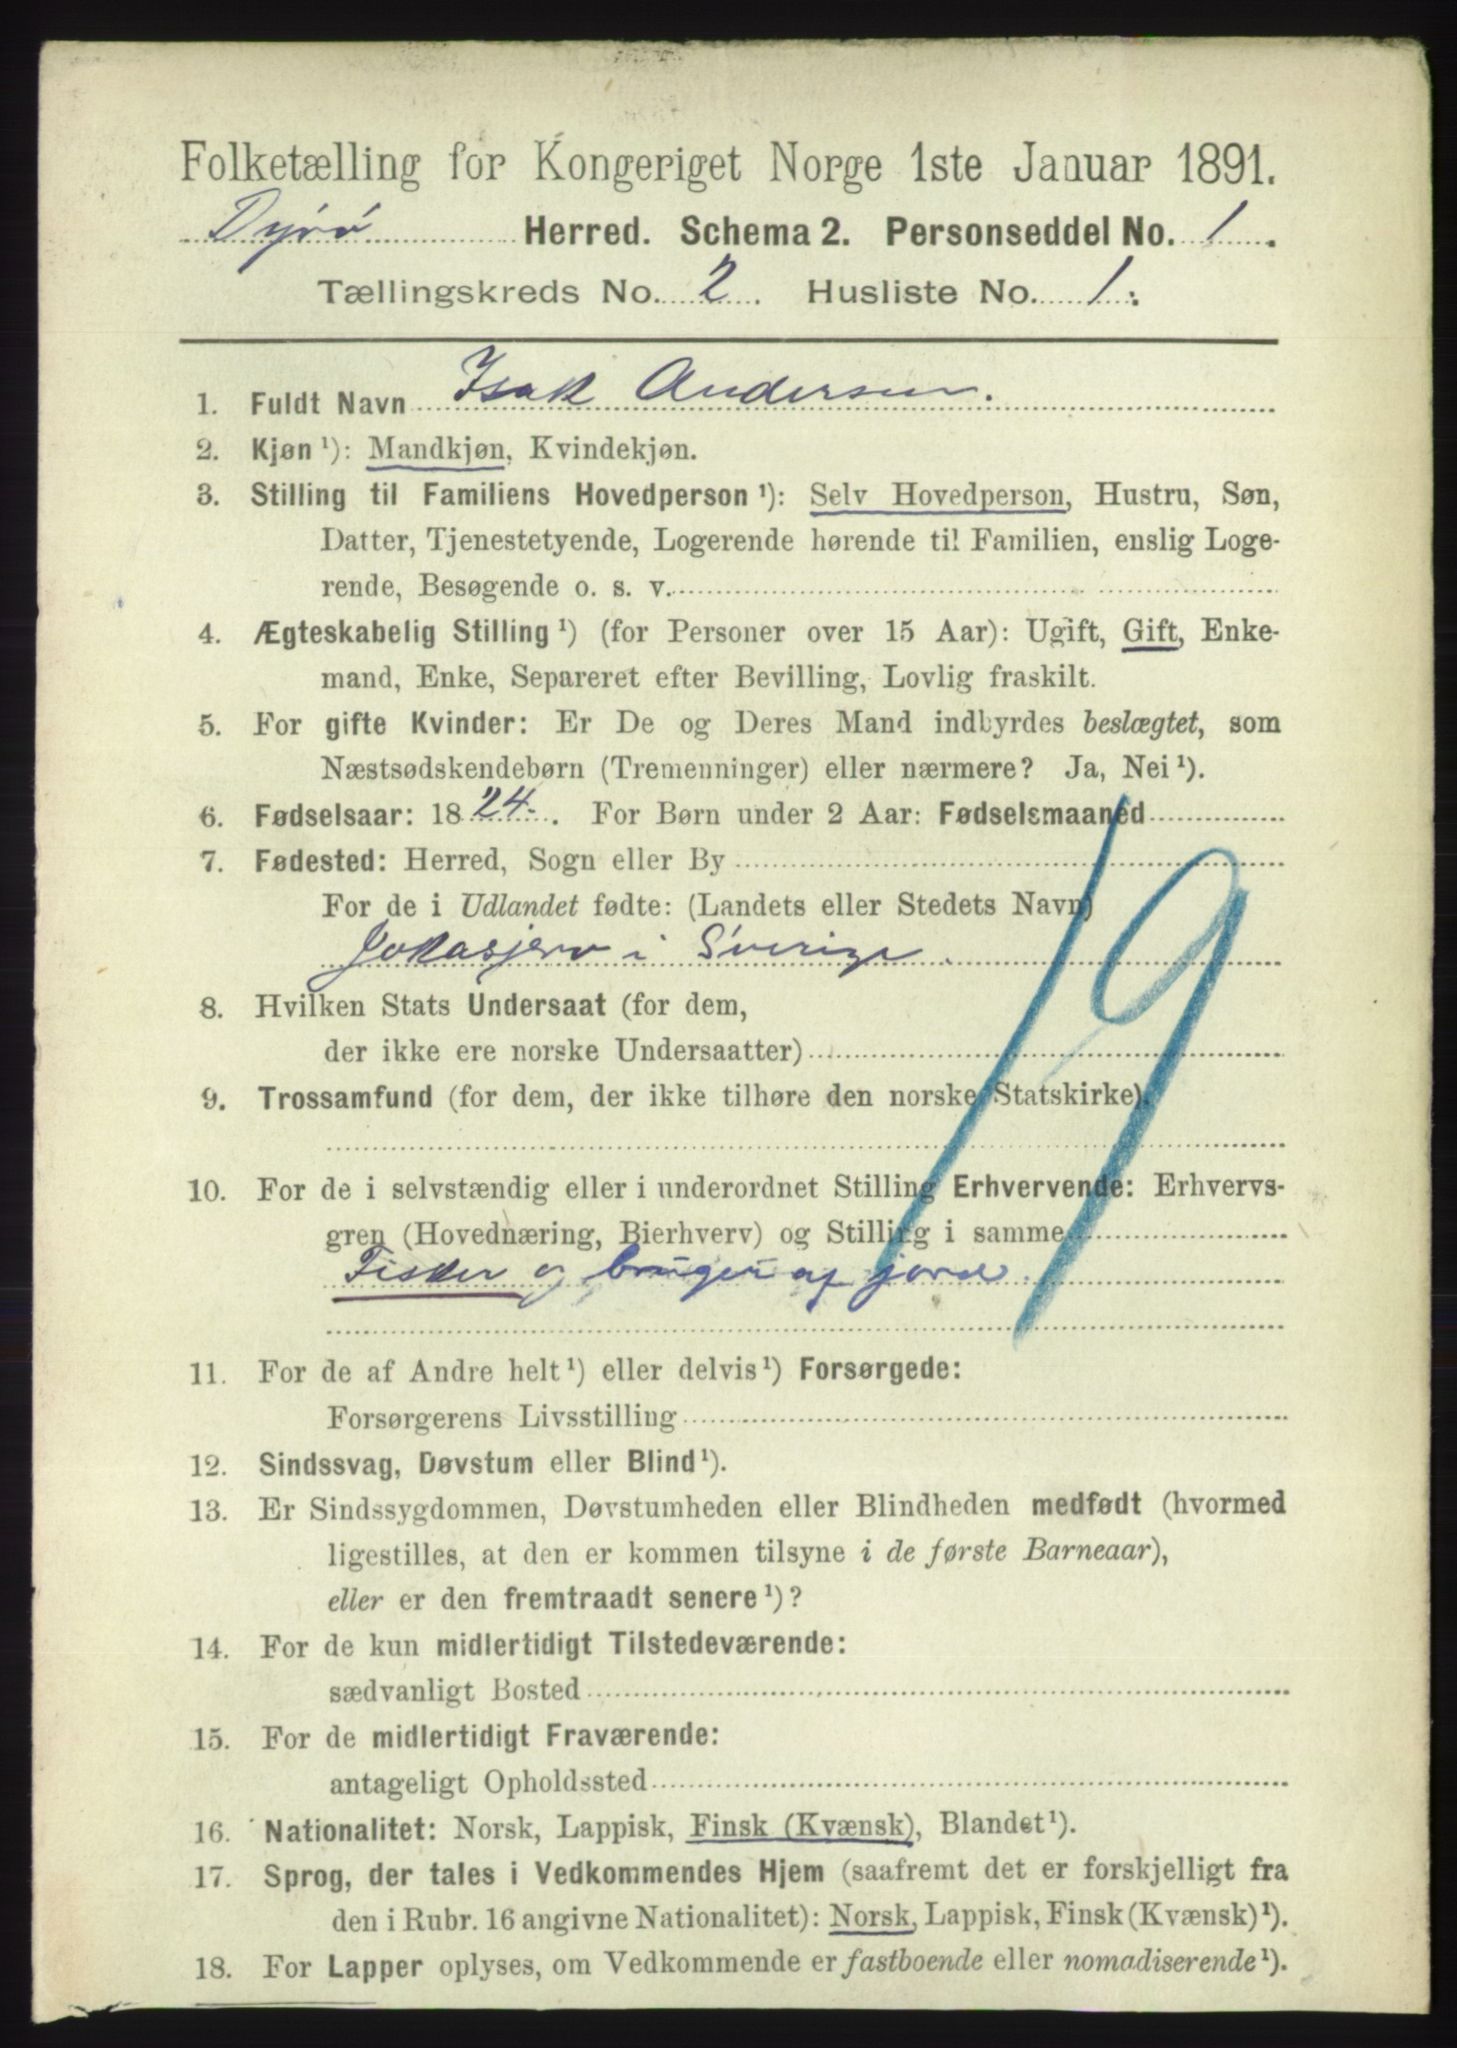 Folketælling for Kongeriget Norge 1ste Januar 1891.
Dyrø Herred. Schema 2. Personseddel No. 1.
Tællingskreds No. 2. Husliste No. 1.
1. Fuldt Navn Isak Andersen.
2. Kjøn ¹): Mandkjøn, Kvindekjøn.
3. Stilling til Familiens Hovedperson ¹): Selv Hovedperson, Hustru, Søn,
Datter, Tjenestetyende, Logerende hørende til Familien, enslig Loge-
rende, Besøgende o. s. v.
4. Ægteskabelig Stilling ¹) (for Personer over 15 Aar): Ugift, Gift, Enke-
mand, Enke, Separeret efter Bevilling, Lovlig fraskilt.
5. For gifte Kvinder: Er De og Deres Mand indbyrdes beslægtet, som
Næstsødskendebørn (Tremenninger) eller nærmere? Ja, Nei ¹).
6. Fødselsaar: 1824. For Børn under 2 Aar: Fødselsmaaned
7. Fødested: Herred, Sogn eller By
For de i Udlandet fødte: (Landets eller Stedets Navn)
Jokasjerv i Sverige.
8. Hvilken Stats Undersaat (for dem,
der ikke ere norske Undersaatter)
9. Trossamfund (for dem, der ikke tilhøre den norske Statskirke).
10. For de i selvstændig eller i underordnet Stilling Erhvervende: Erhvervs-
gren (Hovednæring, Bierhverv) og Stilling i samme
Fisker og bruger af jord.
19
11. For de af Andre helt ¹) eller delvis ¹) Forsørgede:
Forsørgerens Livsstilling
12. Sindssvag, Døvstum eller Blind ¹).
13. Er Sindssygdommen, Døvstumheden eller Blindheden medfødt (hvormed
ligestilles, at den er kommen tilsyne i de første Barneaar),
eller er den fremtraadt senere ¹)?
14. For de kun midlertidigt Tilstedeværende:
sædvanligt Bosted
15. For de midlertidigt Fraværende:
antageligt Opholdssted
16. Nationalitet: Norsk, Lappisk, Finsk (Kvænsk), Blandet ¹).
17. Sprog, der tales i Vedkommendes Hjem (saafremt det er forskjelligt fra
den i Rubr. 16 angivne Nationalitet): Norsk, Lappisk, Finsk (Kvænsk) ¹).
18. For Lapper oplyses, om Vedkommende er fastboende eller nomadiserende ¹).